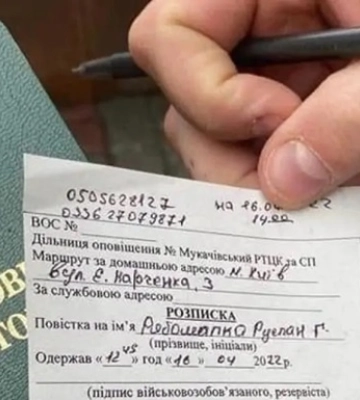 0505628127 на 16.0 22
033627079871 14.00
ВОС №
Дільниця оповіщення № Мукачівський РТЦК та СП
Маршрут за домашньою адресою м. Київ
вул. Є. Марченка, 3
За службовою адресою
РОЗПИСКА
Повістка на ім'я Рябошапка Руслан Г.
(прізвище, ініціали)
Одержав «12 45» год «16» 04 2022р.
(підпис військовозобов'язаного, резервіста)